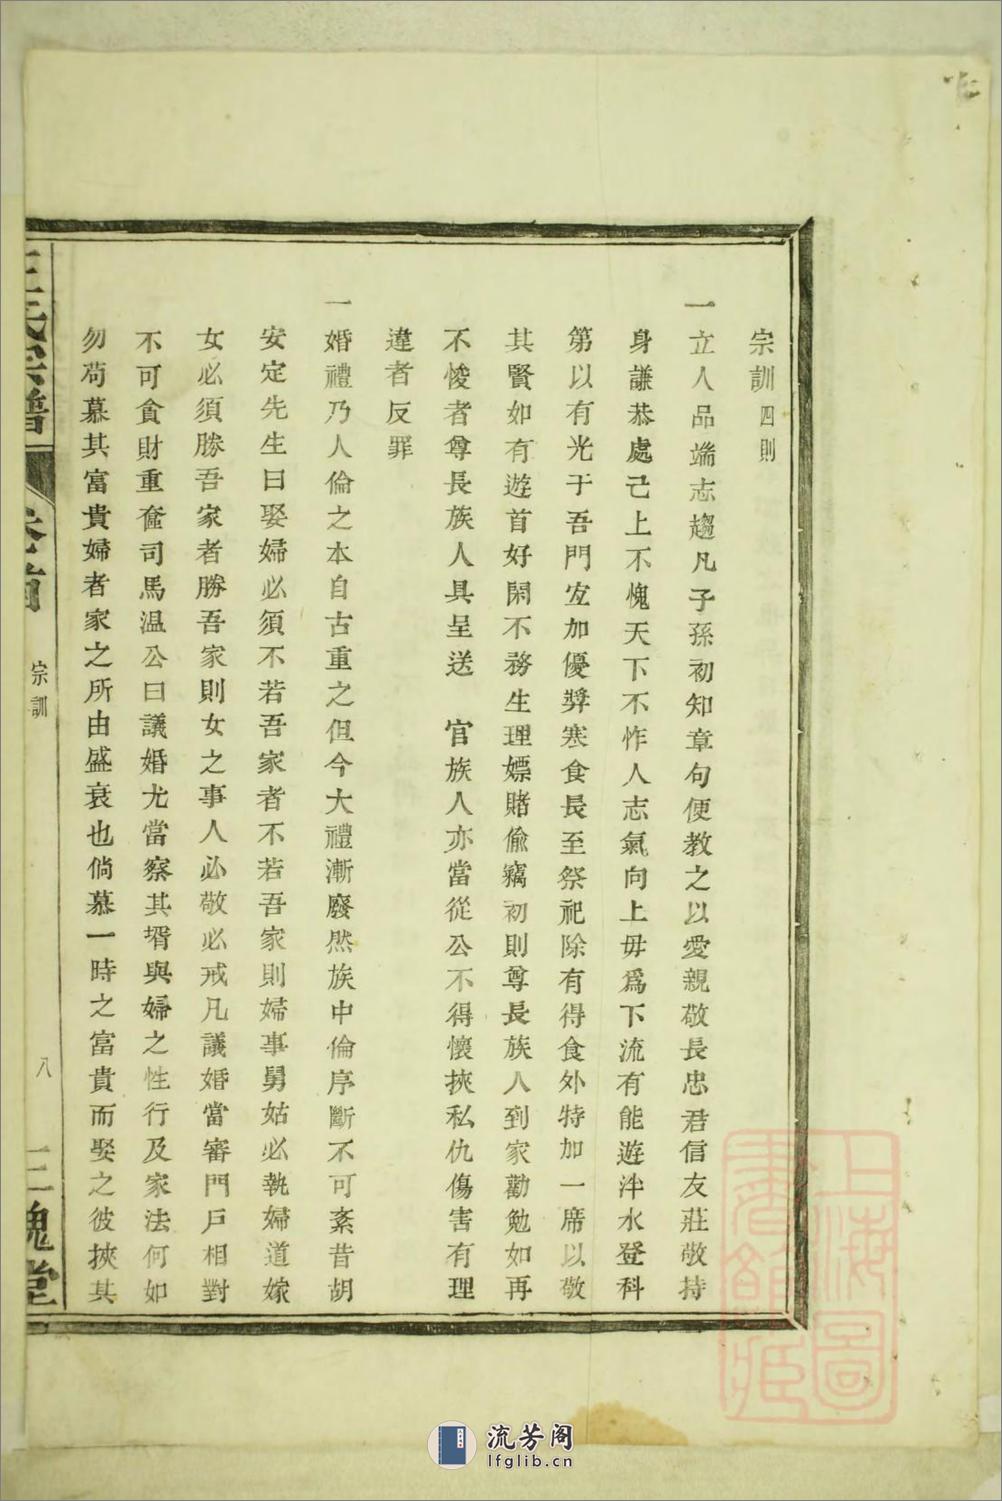 宗訓四則
一立人品端志趨凡子孫初知章句便教之以愛親敬長忠君信友莊敬持
身謙恭處己上不愧天下不怍人志氣向上毋爲下流有能遊泮水登科
第以有光于吾門宐加優奬寒食長至祭祀除有得食外特加一席以敬
其賢如有遊首好閑不務生理嫖賭偷竊初則尊長族人到家勸勉如再
不悛者尊長族人具呈送 官族人亦當從公不得懷挾私仇傷害有理
違者反罪
一婚禮乃人倫之本自古重之但今大禮漸廢然族中倫序斷不可紊昔胡
安定先生曰娶婦必須不若吾家者不若吾家則婦事舅姑必執婦道嫁
女必須勝吾家者勝吾家則女之事人必敬必戒凡議婚當審門戸相對
不可貪財重奩司馬温公曰議婚尤當察其壻與婦之性行及家法何如
勿苟慕其富貴婦者家之所由盛衰也倘慕一時之富貴而娶之彼挾其
王氏宗譜
卷首
宗訓
八
三槐堂
上海圖
書館藏
流芳阁
lfglib.cn